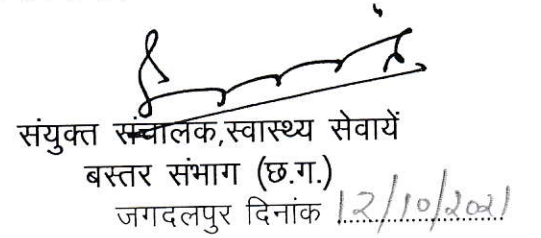 संयुक्त संचालक,स्वास्थ्य सेवायें
बस्तर संभाग (छ.ग.)
जगदलपुर दिनांक 12/10/2021